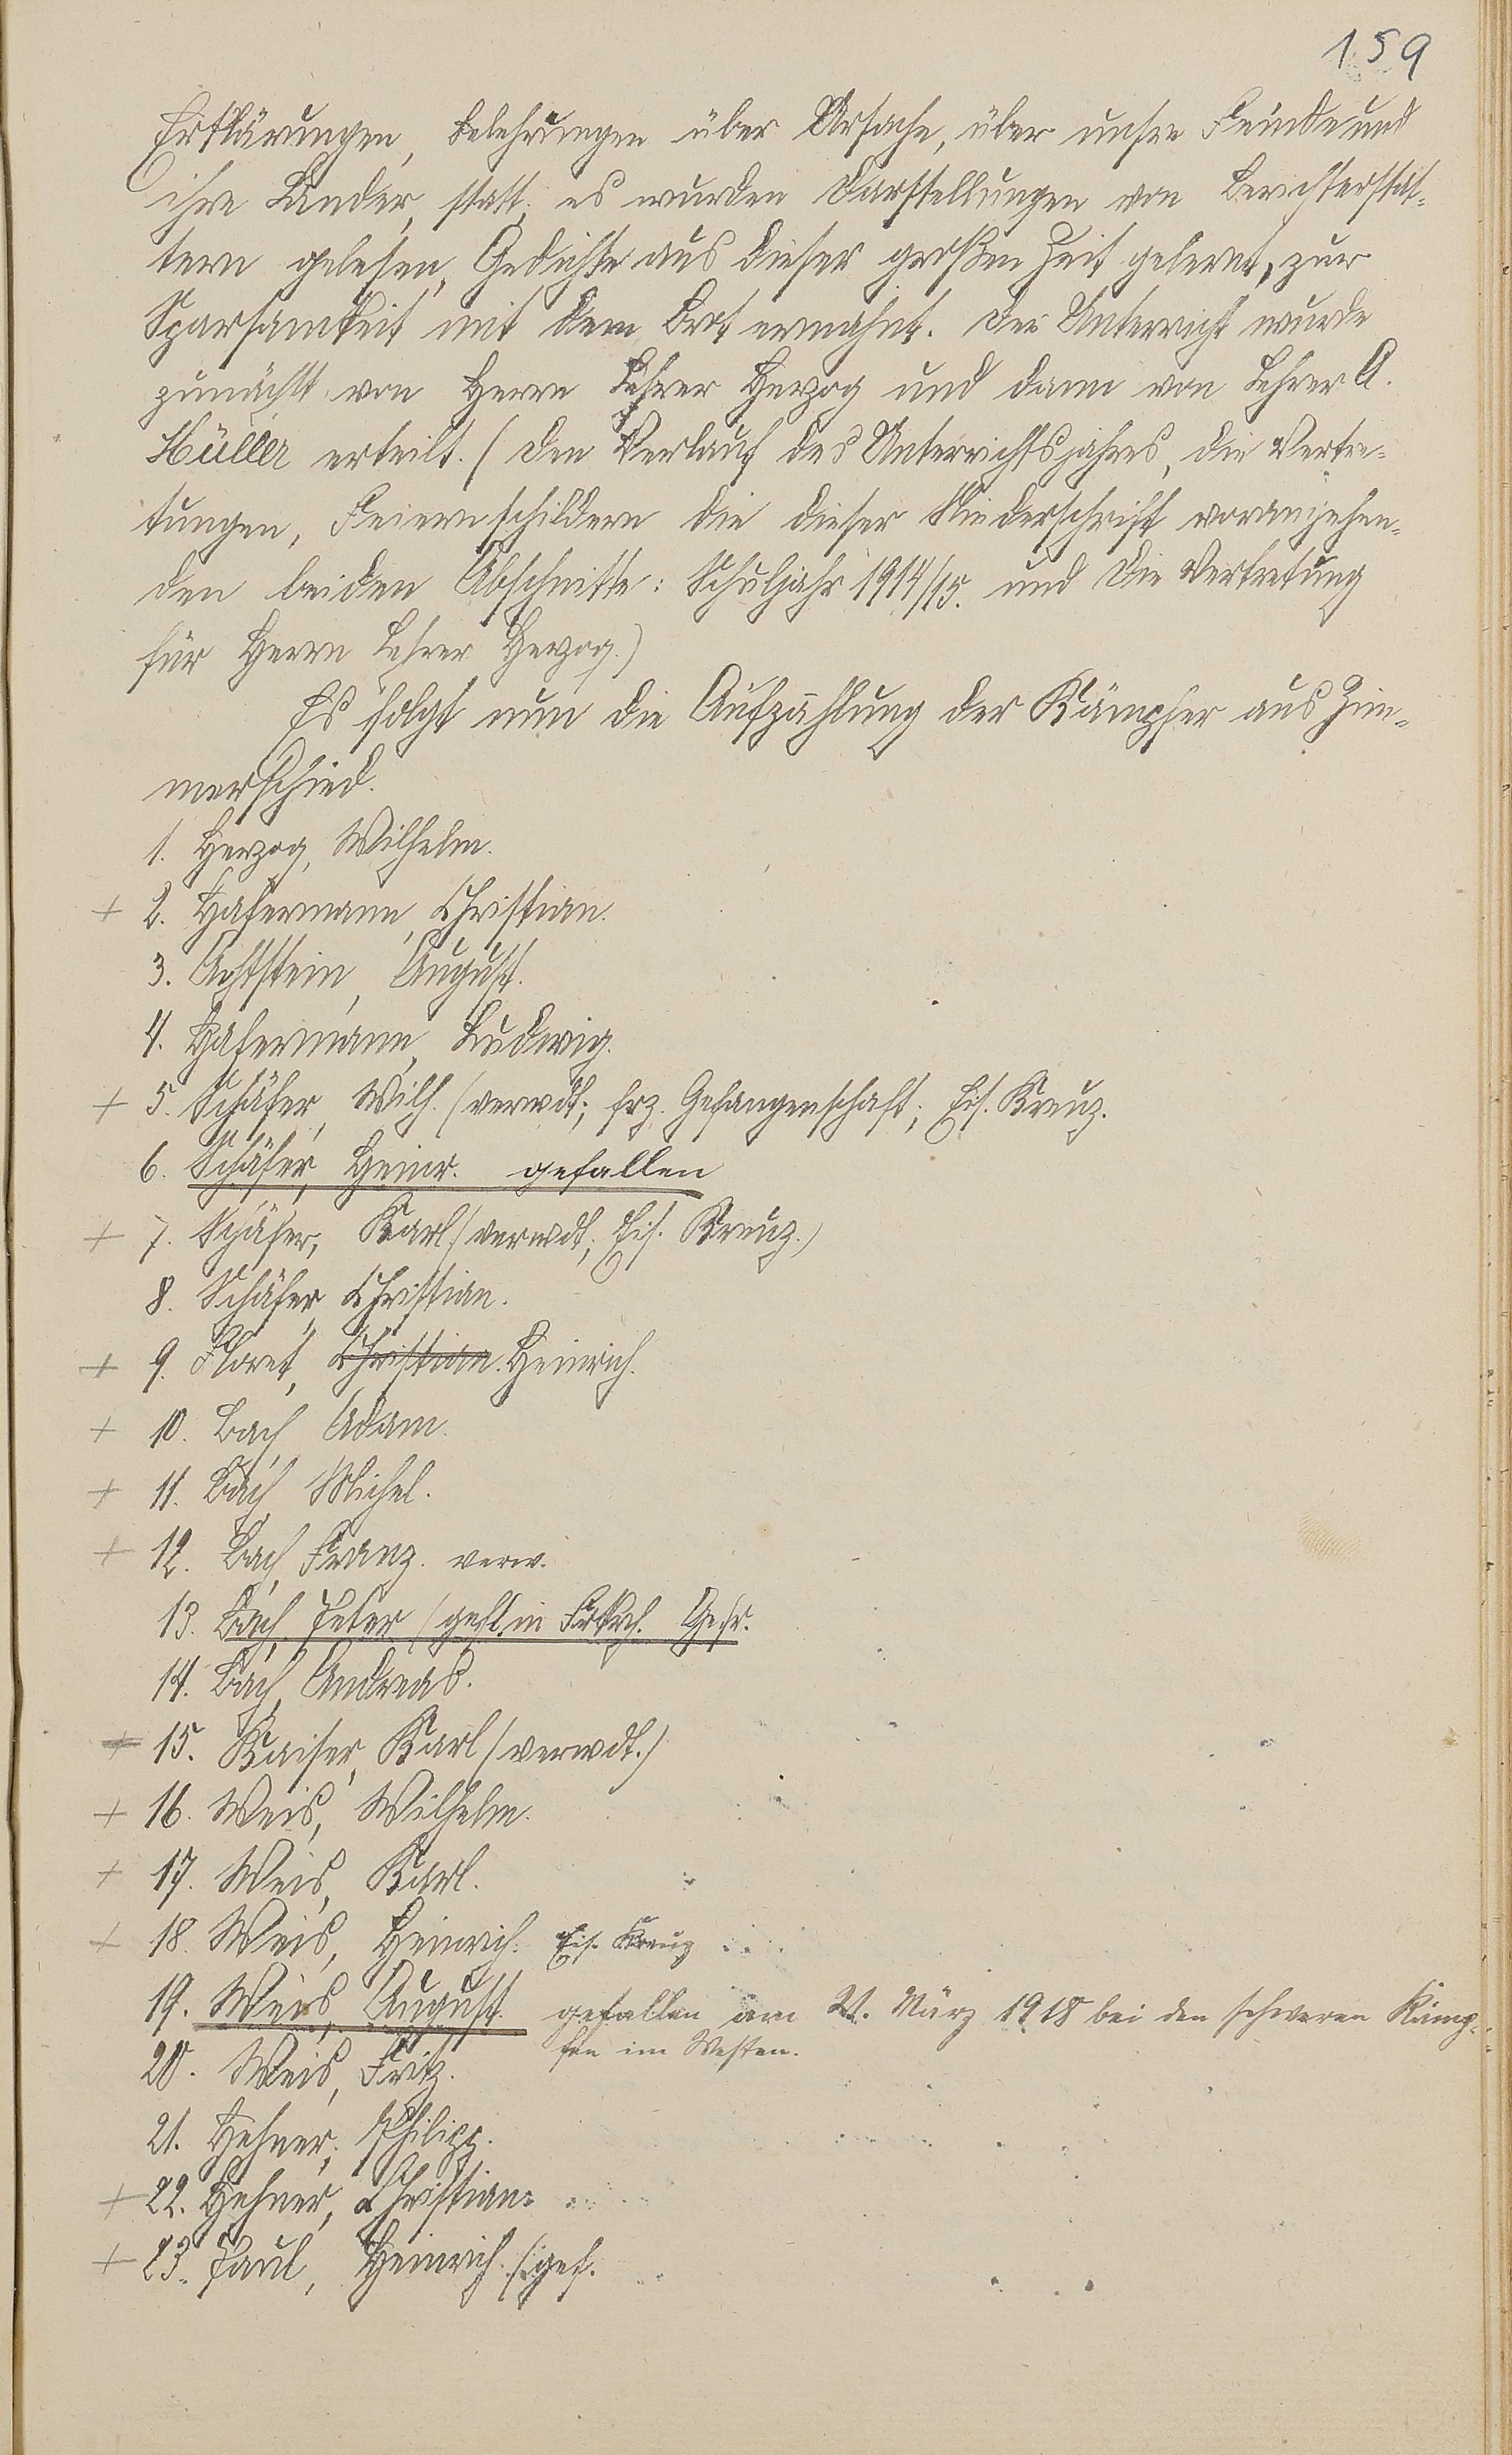 159
Erklärungen, Belehrungen über Ursache, über unsre Feinde und
ihre Länder, statt; es wurden Darstellungen von Berichterstat-
tern gelesen, Gedichte aus dieser großen Zeit gelernt, zur
Sparsamkeit mit dem Brot ermahnt. Der Unterricht wurde
zunächst von Herrn Lehrer Herzog und dann von Lehrer A.
Müller erteilt. (Den Verlauf des Unterrichtsjahres, die Vertre-
tungen, Feiern schildern die dieser Niederschrift vorangehen-
den beiden Abschnitte: Schuljahr 1914/15. und die Vertretung
für Herrn Lehrer Herzog.)
Es folgt nun die Aufzählung der Kämpfer aus Zim-
merschied.
1. Herzog, Wilhelm.
+ 2. Hafermann, Christian.
3. Achtstein, August.
4. Hafermann, Ludwig.
+ 5. Schäfer, Wilh. (verwdt; frz. Gefangenschaft; Eis. Kreuz.
6. Schäfer, Heinr. gefallen
+ 7. Schäfer, Karl (verwdt; Eis. Kreuz.)
8. Schäfer, Christian.
+ 9. Floret, Christian. Heinrich.
+ 10. Bach, Adam.
+ 11. Bach, Michel.
+ 12. Bach, Franz. verw.
13. Bach, Peter (gefl. in Frkrch. Gefr.
14. Bach, Andreas.
+ 15. Kaiser, Karl (verwdt.)
+ 16. Weis, Wilhelm.
+ 17. Weis, Karl.
+ 18. Weis, Heinrich. Eis. Kreuz
19. Weis, August. gefallen am 21. März 1918 bei den schweren Kämp-
fen im Westen.
20. Weis, Fritz.
21. Hehner, Philipp.
+ 22. Hehner, Christian.
+ 23. Paul, Heinrich. (gef.